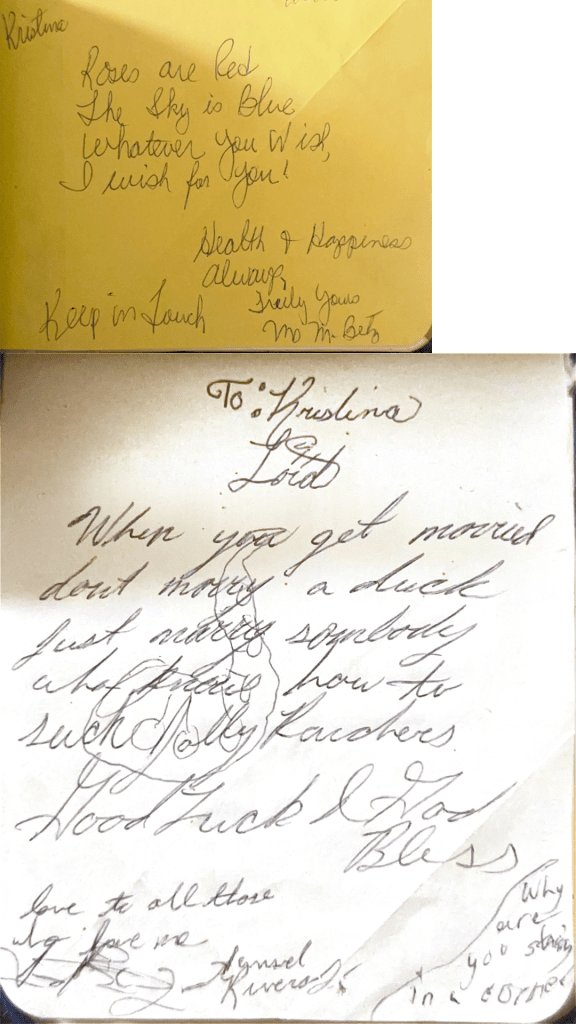 Kristina
Roses are Red
The Sky is Blue
Whatever you Wish,
I wish for you!
Health & Happiness
always,
Truly Yours
M. Betz
Keep in Touch
To: Kristina
When you get married
dont marry a duck
Just marry sombody
who know how to
suck Jolly Ranchers
Good Luck & God
Bless
love to all those
who love me
Rivers Jr.
Why
are
you
in a corner